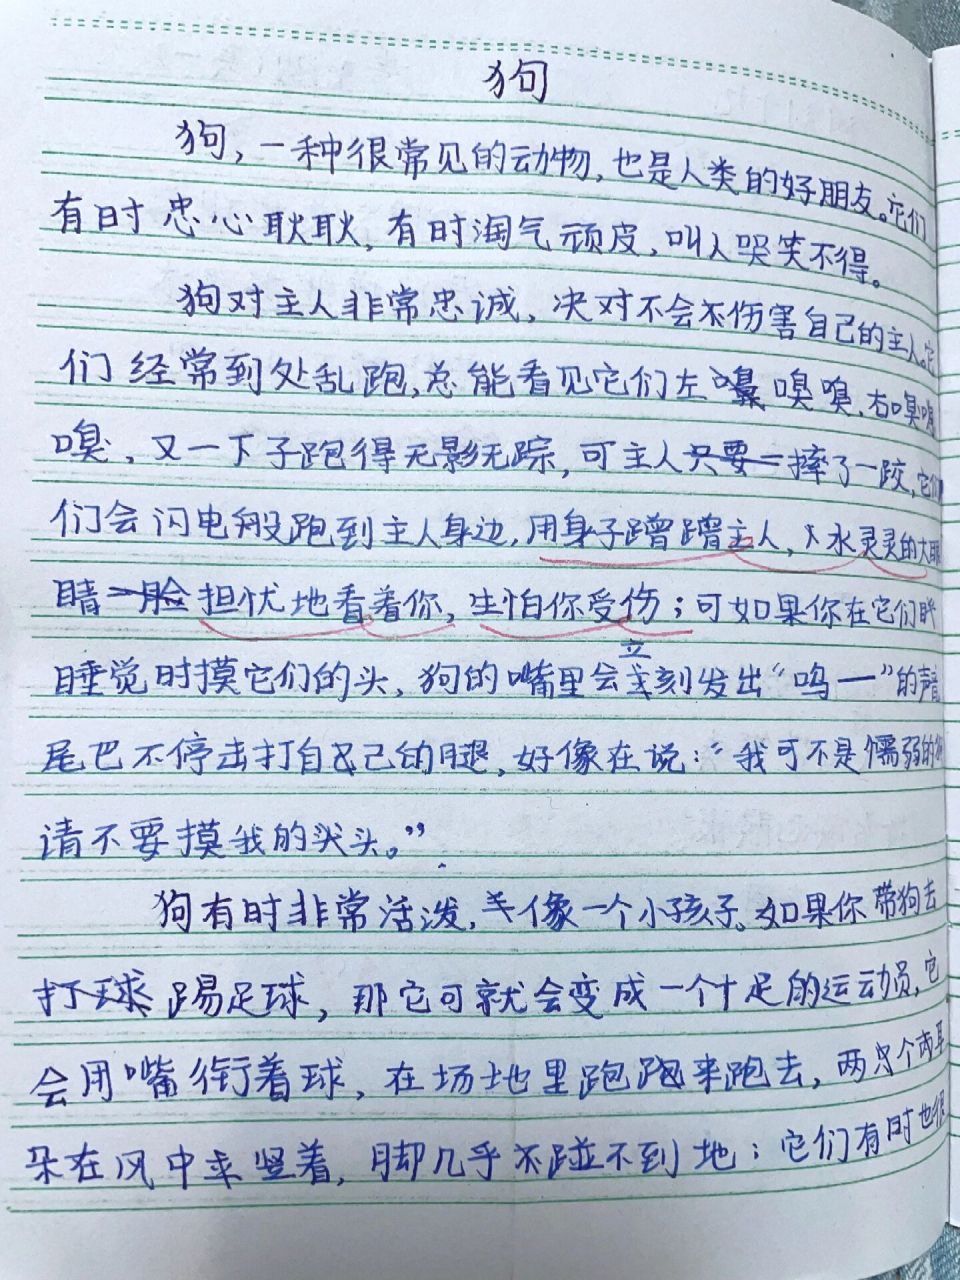 狗
狗，一种很常见的动物，也是人类的好朋友。它们
有时忠心耿耿，有时淘气顽皮，叫人哭笑不得。
狗对主人非常忠诚，决对不会不伤害自己的主人。它
们经常到处乱跑，总能看见它们左嗅嗅，右嗅嗅
嗅，又一下子跑得无影无踪，可主人只要一摔了一跤，它们
们会闪电般跑到主人身边，用身子蹭蹭主人，水灵灵的大眼
睛一脸担忧地看着你，生怕你受伤；可如果你在它们
睡觉时摸它们的头，狗的嘴里会立刻发出“呜一”的声音
尾巴不停击打自己的腿，好像在说：“我可不是懦弱的
请不要摸我的头。”
狗有时非常活泼，像一个小孩子。如果你带狗去
打球踢足球，那它可就会变成一个十足的运动员，它
会用嘴衔着球，在场地里跑来跑去，两只个两耳
朵在风中竖着，脚几乎不碰不到地；它们有时也很